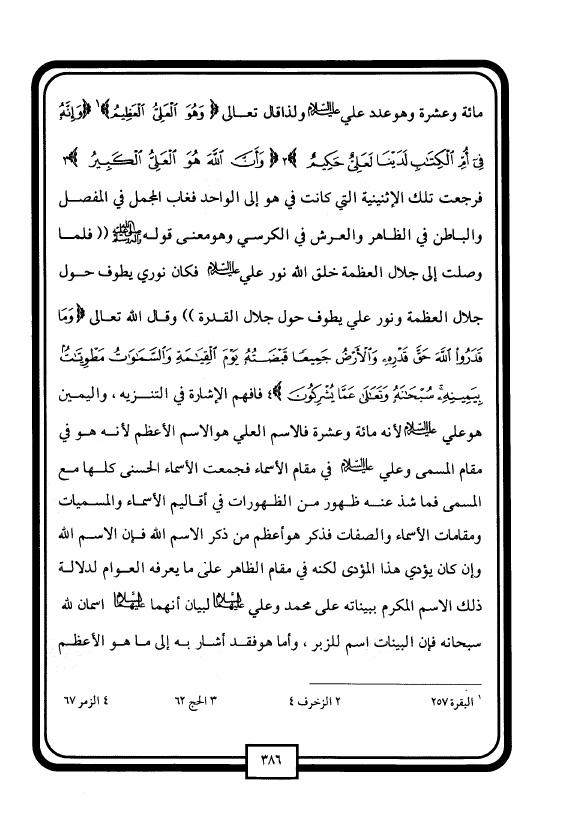 مائة وعشرة وهو عدد علي عليه السلام ولذا قال تعالى ﴿ وَهُوَ ٱلْعَلِىُّ ٱلْعَظِيمُ ﴾١ ﴿ وَإِنَّهُۥ
فِىٓ أُمِّ ٱلْكِتَـٰبِ لَدَيْنَا لَعَلِىٌّ حَكِيمٌ ﴾٢ ﴿ وَأَنَّ ٱللَّهَ هُوَ ٱلْعَلِىُّ ٱلْكَبِيرُ ﴾٣
فرجعت تلك الإثنينية التي كانت في هو إلى الواحد فغاب المجمل في المفصل
والباطن في الظاهر والعرش في الكرسي وهو معنى قوله صلى الله عليه وآله (( فلما
وصلت إلى جلال العظمة خلق الله نور علي عليه السلام فكان نوري يطوف حول
جلال العظمة ونور علي يطوف حول جلال القدرة )) وقال الله تعالى ﴿ وَمَا
قَدَرُوا۟ ٱللَّهَ حَقَّ قَدْرِهِۦ وَٱلْأَرْضُ جَمِيعًا قَبْضَتُهُۥ يَوْمَ ٱلْقِيَـٰمَةِ وَٱلسَّمَـٰوَٰتُ مَطْوِيَّـٰتٌۢ
بِيَمِينِهِۦ ۚ سُبْحَـٰنَهُۥ وَتَعَـٰلَىٰ عَمَّا يُشْرِكُونَ ﴾٤ فافهم الإشارة في التنزيه ، واليمين
هو علي عليه السلام لأنه مائة وعشرة فالاسم العلي هو الاسم الأعظم لأنه هو في
مقام المسمى وعلي عليه السلام في مقام الأسماء فجمعت الأسماء الحسنى كلها مع
المسمى فما شذ عنه ظهور من الظهورات في أقاليم الأسماء والمسميات
ومقامات الأسماء والصفات فذكر هو أعظم من ذكر الاسم الله فإن الاسم الله
وإن كان يؤدي هذا المؤدى لكنه في مقام الظاهر على ما يعرفه العوام لدلالة
ذلك الاسم المكرم ببيناته على محمد وعلي عليهما السلام لبيان أنهما عليهما السلام اسمان لله
سبحانه فإن البينات اسم للزبر ، وأما هو فقد أشار به إلى ما هو الأعظم
١ البقرة ٢٥٧ ٢ الزخرف ٤ ٣ الحج ٦٢ ٤ الزمر ٦٧
٣٨٦